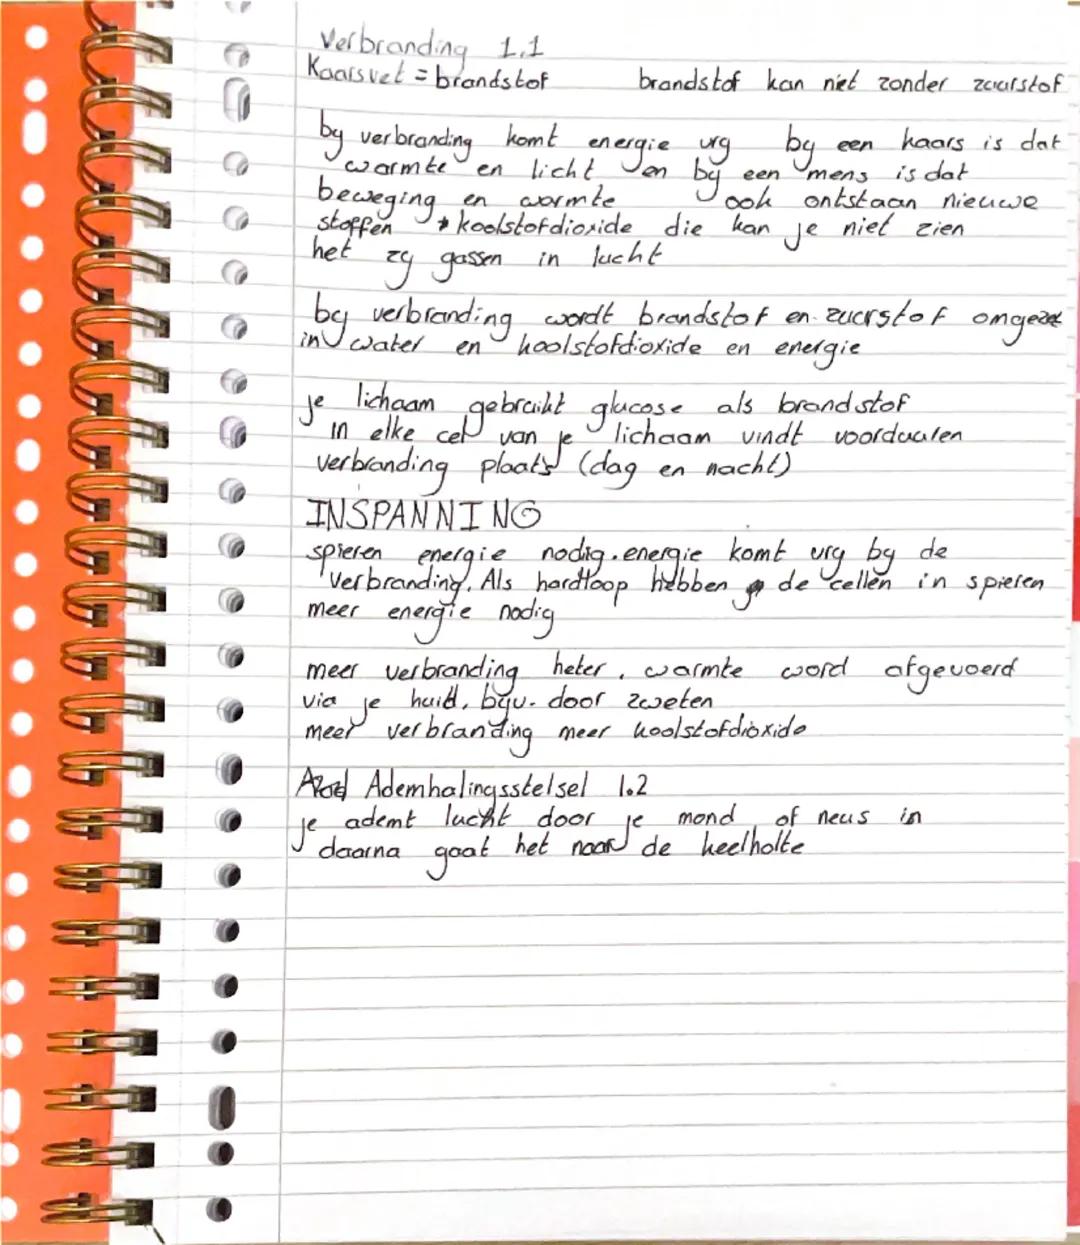 Verbranding 1.1
Kaarsvet = brandstof brandstof kan niet zonder zuurstof
by verbranding komt energie vry by een kaars is dat
warmte en licht en by een mens is dat
beweging en warmte ook ontstaan nieuwe
stoffen → koolstofdioxide die kan je niet zien
het zy gassen in lucht
by verbranding wordt brandstof en zuurstof omgezet
in water en koolstofdioxide en energie
je lichaam gebruikt glucose als brandstof
in elke cel van je lichaam vindt voorduuren
verbranding plaats (dag en nacht)
INSPANNING
spieren energie nodig. energie komt vry by de
verbranding. Als hardloop hebben de cellen in spieren
meer energie nodig
meer verbranding heter. warmte word afgevoerd
via je huid, byv. door zweten
meer verbranding meer koolstofdioxide
Ademhalingsstelsel 1.2
je ademt lucht door je mond of neus in
daarna gaat het naar de keelholte